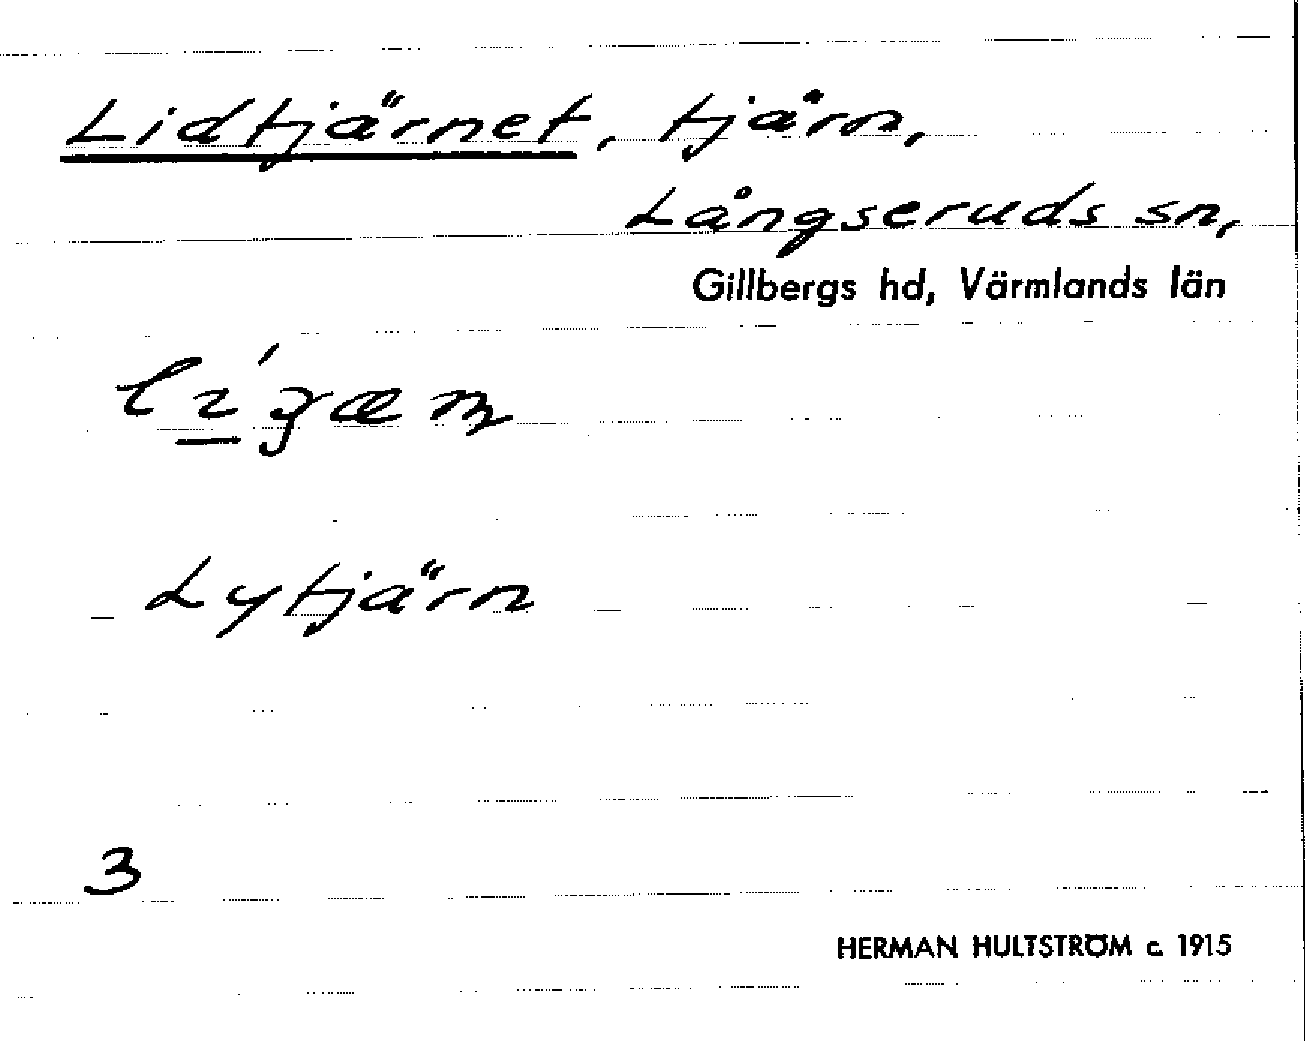 Lidtjärnet, tjärn,
Långseruds sn,
Gillbergs hd, Värmlands län
Lytjärn
3
HERMAN HULTSTRÖM c. 1915